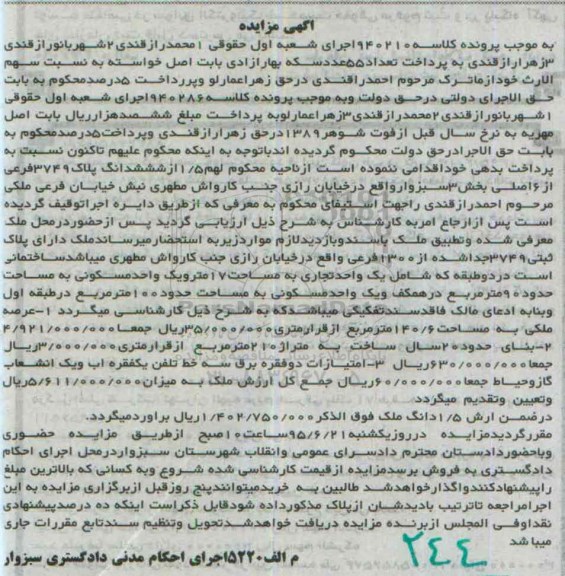 آگهی مزایده
به موجب پرونده کلاسه ۹۴۰۲۱۰اجرای شعبه اول حقوقی ۱محمدرازقندی۲شهربانورازقندی
۳زهرارازقندی به پرداخت تعداد۵۵عددسکه بهارازادی بابت اصل خواسته به نسبت سهم
الارث خودازماترک مرحوم احمدرازقندی درحق زهراعمارلو وپرداخت ۵درصدمحکوم به بابت
حق الاجرای دولتی درحق دولت وبه موجب پرونده کلاسه۹۴۰۲۸۶اجرای شعبه اول حقوقی
۱شهربانورازقندی۲محمدرازقندی۳زهراعمارلوبه پرداخت مبلغ ششصدهزارریال بابت اصل
مهریه به نرخ سال قبل ازفوت شوهر۱۳۸۹درحق زهرارازقندی وپرداخت۵درصدمحکوم به
بابت حق الاجرادرحق دولت محکوم گردیده اندباتوجه به اینکه محکوم علیهم تاکنون نسبت به
پرداخت بدهی خوداقدامی ننموده است ازناحیه محکوم لهم۱/۵ازششدانگ پلاک۳۷۴۹فرعی
از۶اصلی بخش۳سبزوارواقع درخیابان رازی جنب کارواش مطهری نبش خیابان فرعی ملکی
مرحوم احمدرازقندی راجهت استیفای محکوم به معرفی که ازطریق دایره اجراتوقیف گردیده
است پس ازارجاع امربه کارشناس به شرح ذیل ارزیابی گردید پس ازحضوردرمحل ملک
معرفی شده وتطبیق ملک باسندوبازدیدلازم مواردزیربه استحضارمیرساندملک دارای پلاک
ثبتی۳۷۴۹جداشده از۱۳۰۰فرعی واقع درخیابان رازی جنب کارواش مطهری میباشدساختمانی
است دردوطبقه که شامل یک واحدتجاری به مساحت۱۷مترویک واحدمسکونی به مساحت
حدود۹۰مترمربع درهمکف ویک واحدمسکونی به مساحت حدود۱۰۰مترمربع درطبقه اول
وبنابه ادعای مالک فاقدسندتفکیکی میباشدکه به شرح ذیل کارشناسی میگردد ۱-عرصه
ملکی به مساحت۱۴۰/۶مترمربع ازقرارمتری۳۵/۰۰۰/۰۰۰ریال جمعا۴/۹۲۱/۰۰۰/۰۰۰
۲-بنای حدود۲۰سال ساخت به متراژ۲۱۰مترمربع ازقرارمتری۳/۰۰۰/۰۰۰ریال
جمعا۶۳۰/۰۰۰/۰۰۰ریال ۳-امتیازات دوفقره برق سه خط تلفن یکفقره اب ویک انشعاب
گازوحیاط جمعا۶۰/۰۰۰/۰۰۰ریال جمع کل ارزش ملک به میزان۵/۶۱۱/۰۰۰/۰۰۰ریال
وتعیین وتقدیم میگردد
درضمن ارش ۱/۵دانگ ملک فوق الذکر۱/۴۰۲/۷۵۰/۰۰۰ریال براوردمیگردد.
مقررگردیدمزایده درروزیکشنبه۹۵/۶/۲۱ساعت۱۰صبح ازطریق مزایده حضوری
وباحضوردادستان محترم دادسرای عمومی وانقلاب شهرستان سبزواردرمحل اجرای احکام
دادگستری به فروش برسدمزایده ازقیمت کارشناسی شده شروع وبه کسانی که بالاترین مبلغ
راپیشنهادکنندواگذارخواهدشد طالبین به خریدمیتوانندپنج روزقبل ازبرگزاری مزایده به این
اجرامراجعه تاترتیب بادیدشان ازپلاک مذکورداده شودقابل ذکراست اینکه ده درصدپیشنهادی
نقداوفی المجلس ازبرنده مزایده دریافت خواهدشدتحویل وتنظیم سندتابع مقررات جاری
میباشد
۲۴۴
م الف۱۵۲۲۰اجرای احکام مدنی دادگستری سبزوار